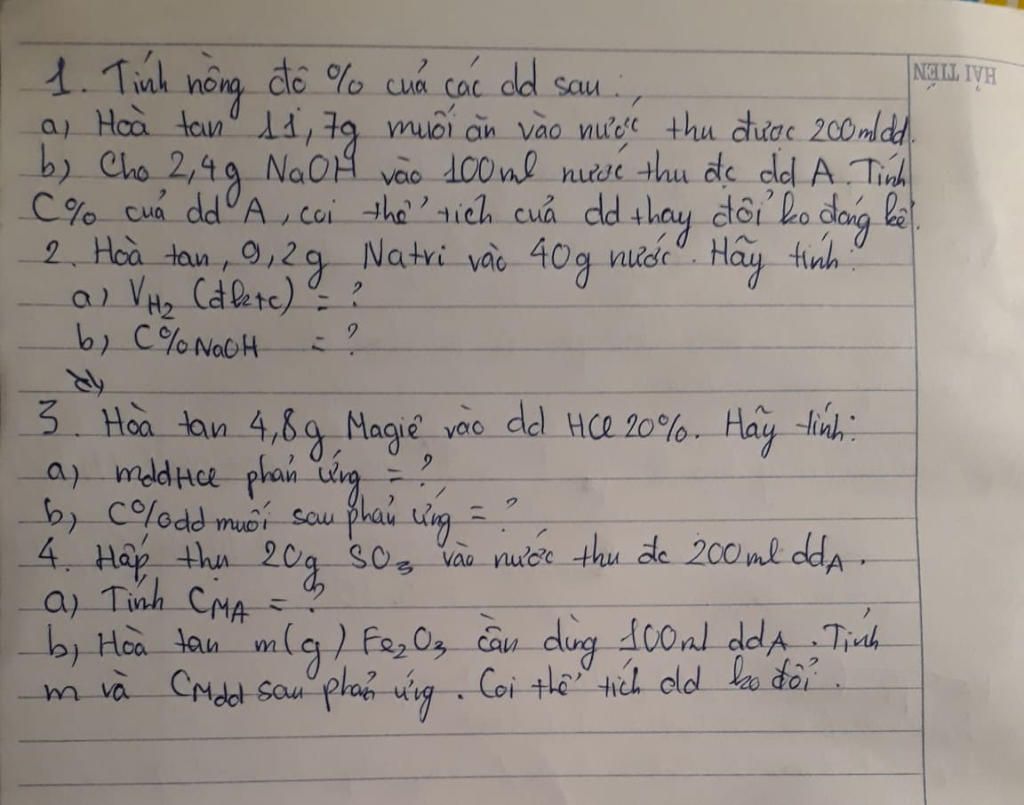 1. Tính nồng độ % của các dd sau:
a) Hoà tan 11,7g muối ăn vào nước thu được 200ml dd.
b) Cho 2,4g NaOH vào 100ml nước thu đc dd A. Tính
C% của dd A, coi thể tích của dd thay đổi ko đáng kể.
2. Hoà tan 9,2g Natri vào 40g nước. Hãy tính:
a) VH2 (đktc) = ?
b) C%NaOH = ?
3. Hoà tan 4,8g Magiê vào dd HCl 20%. Hãy tính:
a) mddHCl phản ứng = ?
b) C%dd muối sau phản ứng = ?
4. Hấp thu 20g SO3 vào nước thu đc 200ml ddA.
a) Tính CMA = ?
b) Hoà tan m(g) Fe2O3 cần dùng 100ml ddA. Tính
m và CMdd sau phản ứng. Coi thể tích dd ko đổi.
HẢI TIẾN